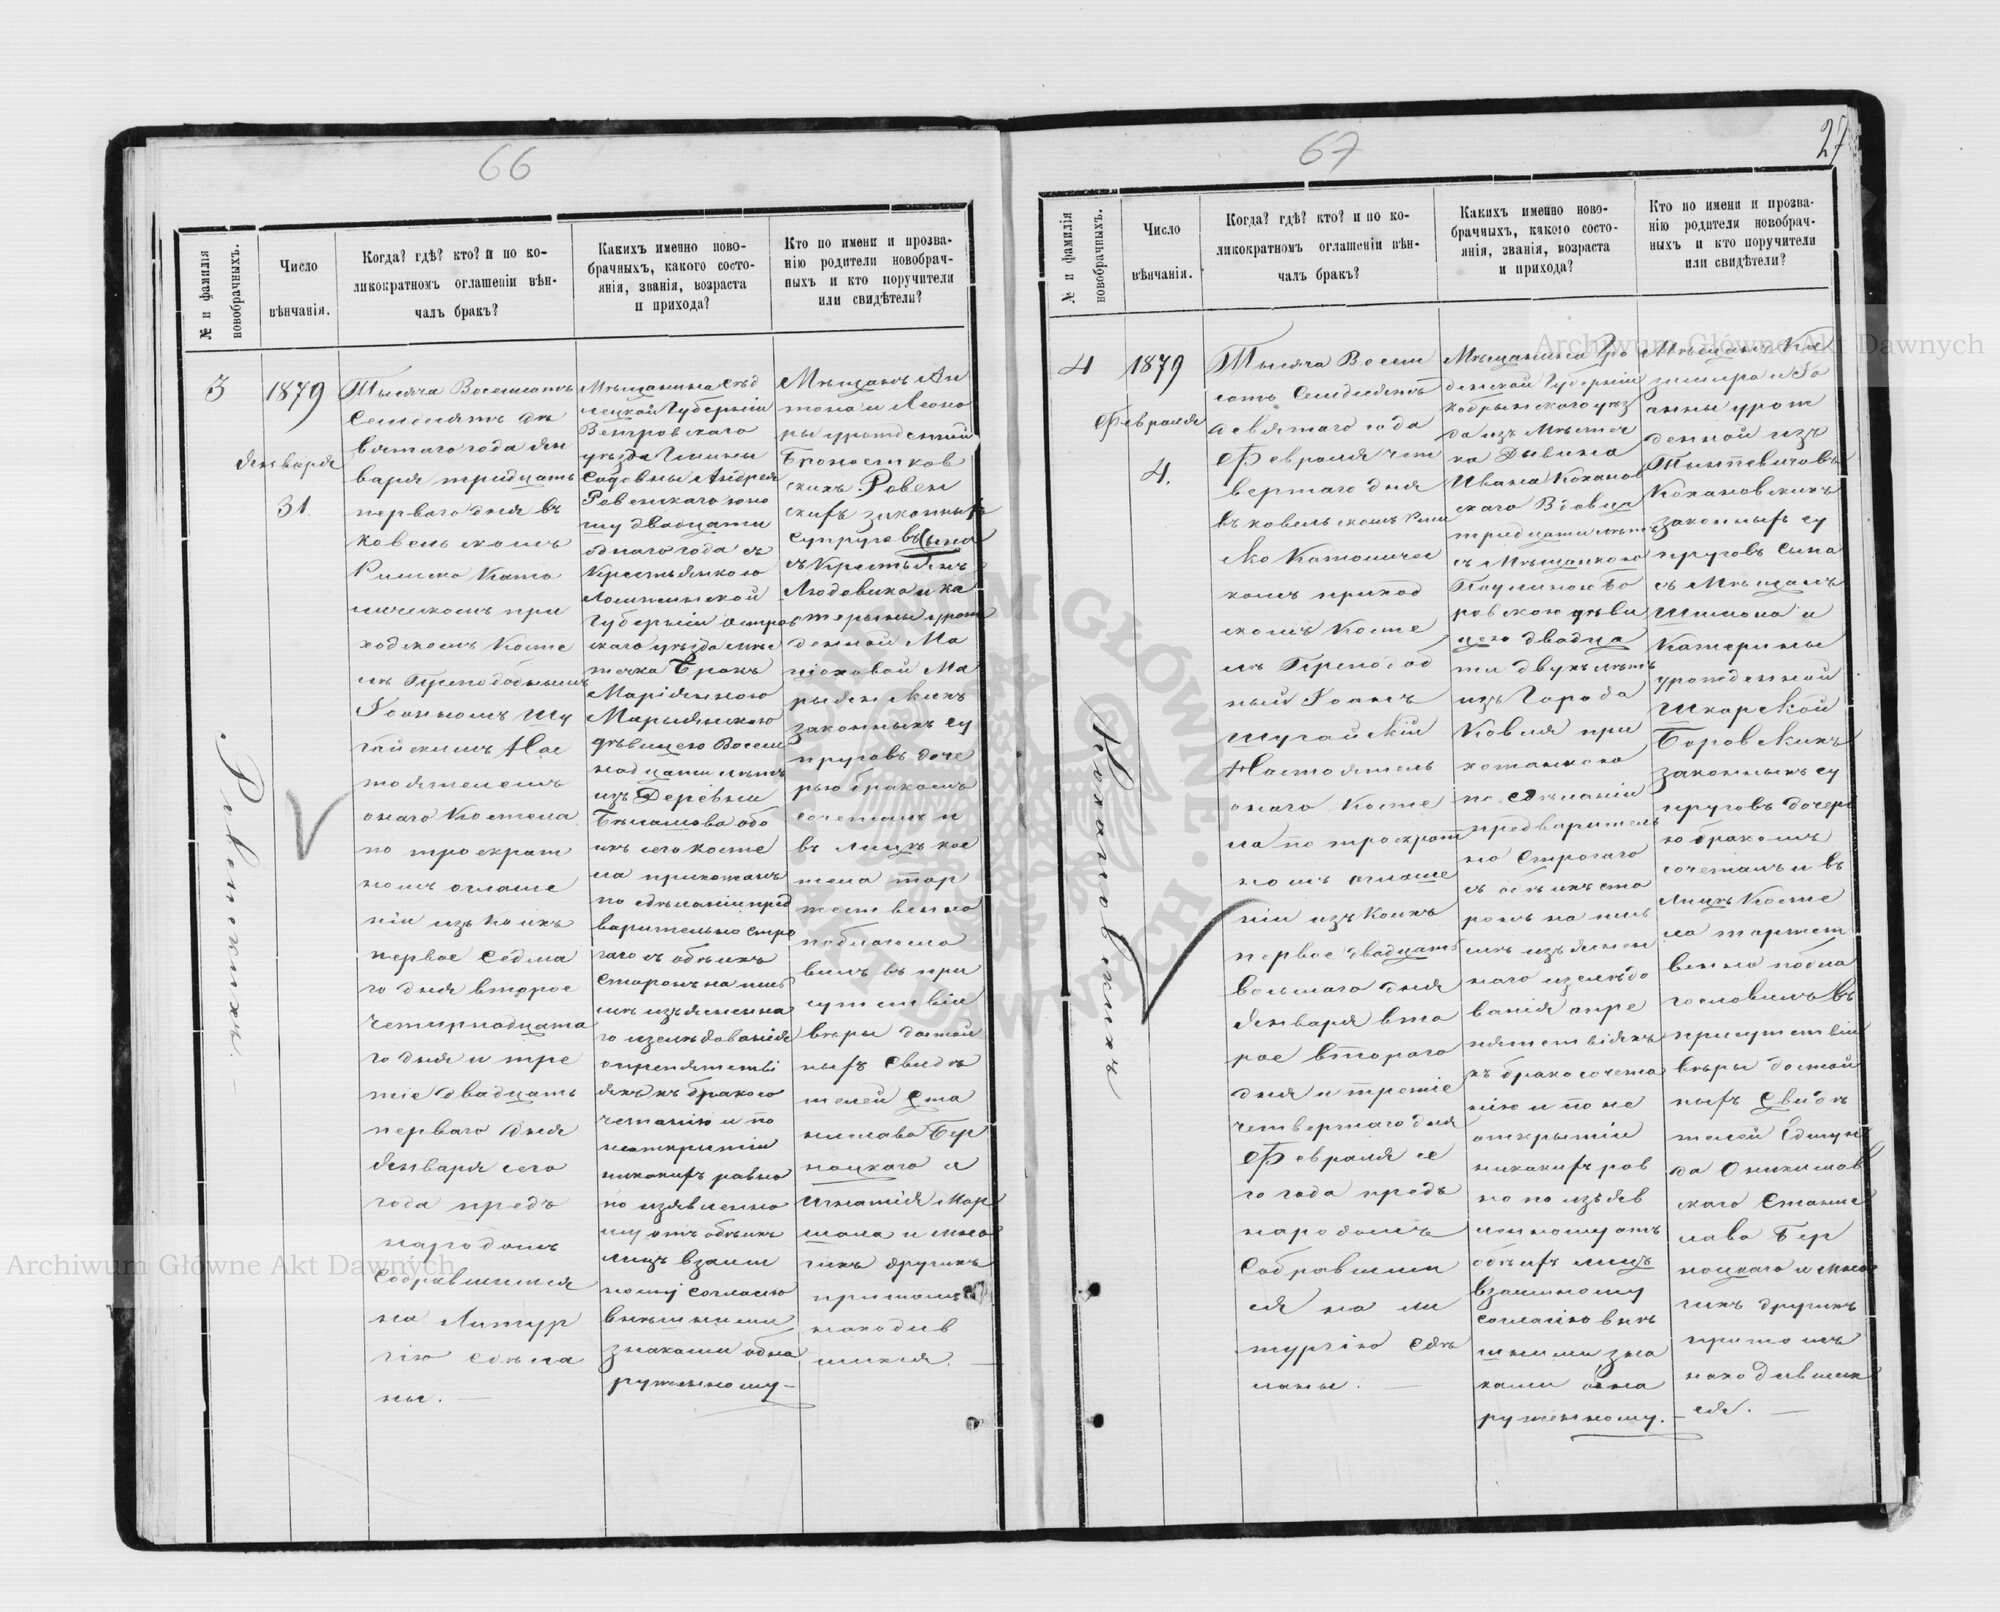 66
№ и фамилія новобрачныхъ.
Число вѣнчанія.
Когда? гдѣ? кто? и по ко-
ликократномъ оглашеніи вѣн-
чалъ бракъ?
Какихъ именно ново-
брачныхъ, какого состо-
янія, званія, возраста
и прихода?
Кто по имени и прозва-
нію родители новобрач-
ныхъ и кто поручители
или свидѣтели?
3
1879
Января
31.
Тысяча Восемьсотъ
Семдесятъ де
вятаго года Ян
варя тридцать
перваго дня въ
Ковельскомъ
Римско Като
лическомъ при
ходскомъ Косте
лѣ Преподобнымъ
Іоанномъ Шу
гайскимъ Нас
тоятелемъ
онаго Костела
по троекрат
номъ оглаше
ніи изъ коихъ
первое Седма
го дня второе
Четырнадцата
го дня и тре
тіе двадцать
перваго дня
Января сего
года предъ
народомъ
Собравшимся
на Литур
гію сдѣла
ны. —
Мѣщанина Сѣд
лецкой Губерніи
уѣзда Гмины
Андрея
Ровенскаго юно
шу двадцати
однаго года съ
Крестьянкою
Ломжинской
Губерніи Остров
скаго уѣзда мѣс
течка Брокъ
Маріянною
Марыянскою
дѣвицею Восем
надцати лѣтъ
изъ Деревни
обо
ихъ сего Косте
ла прихожанъ
по сдѣланіи пред
варительно стро
гаго съ обѣихъ
Сторонъ на пись
мѣ изъясненна
го изслѣдованія
о препятстві
яхъ къ бракосо
четанію и по
неоткрытіи
никакихъ равно
по изявленно
му отъ обѣихъ
лицъ взаим
ному согласію
внѣшними
знаками обна
руженному —
Мѣщанъ Ан
тона и Леоно
ры урожденной
Броностков
скихъ Ровен
скихъ законныхъ
Супруговъ Сына
съ Крестьянъ
Людовика и Ка
терыны урож
денной Ма
ціоховой Ма
рыянскихъ
законныхъ Су
пруговъ доче
рью бракомъ
сочеталъ и
въ лицѣ кос
тела тор
жественно
поблагосло
вилъ въ при
сутствіи
вѣры достой
ныхъ Свидѣ
телей Ста
нислава Бер
нацкаго и
Игнатія Мар
шала и мно
гихъ другихъ
притомъ
находив
шихся. —
Ровенскихъ. —
67
27
№ и фамилія новобрачныхъ.
Число вѣнчанія.
Когда? гдѣ? кто? и по ко-
ликократномъ оглашеніи вѣн-
чалъ бракъ?
Какихъ именно ново-
брачныхъ, какого состо-
янія, званія, возраста
и прихода?
Кто по имени и прозва-
нію родители новобрач-
ныхъ и кто поручители
или свидѣтели?
4
1879
Февраля
4.
Тысяча Восем
сотъ Семдесятъ
девятаго года
Февраля чет
вертаго дня
въ Ковельскомъ Рим
ско Католичес
комъ приход
скомъ Косте
лѣ Преподоб
ный Іоанъ
Шугайскій
Настоятель
онаго Косте
ла по троекрат
номъ оглаше
ніи изъ Коихъ
первое двадцать
восьмаго дня
Января вто
рое втораго
дня и третіе
четвертаго дня
Февраля се
го года предъ
народомъ
Собравшим
ся на ли
тургію сдѣ
ланы. —
Мѣщанина Гро
дненской Губерніи
Кобрынскаго уѣз
да изъ Мѣстеч
ка Дывина
Ивана Коханов
скаго Вдовца
тридцати лѣтъ
съ Мѣщанкою
Паулиною Бо
ровскою дѣви
цею двадца
ти двухъ лѣтъ
изъ Города
Ковля при
хожанкою
по сдѣланіи
предваритель
но Строгаго
съ обѣихъ сто
ронъ на пись
мѣ изъяснен
наго изслѣдо
ванія о пре
пятствіяхъ
къ бракосочета
нію и по не
открытіи
никакихъ рав
но по изъяв
ленному отъ
обѣихъ лицъ
взаимному
согласію внѣ
шними зна
ками обна
руженному. —
Мѣщанъ Ка
зимира и Іо
анны урож
денной изъ
Тышкевичовъ
Кохановскихъ
законныхъ су
пруговъ Сына
съ Мѣщанъ
Шимона и
Катерины
урожденной
Шкарской
Боровскихъ
законныхъ су
пруговъ дочерь
ю бракомъ
сочеталъ и въ
лицѣ Косте
ла торжест
венно побла
гословилъ въ
присутствіи
вѣры достой
ныхъ Свидѣ
телей Едмун
да
скаго Станис
лава Бер
нацкаго и мно
гихъ другихъ
притомъ
находивших
ся. —
Кохановскихъ
Archiwum Główne Akt Dawnych
Archiwum Główne Akt Dawnych
ARCHIWUM GŁÓWNE AKT DAWNYCH